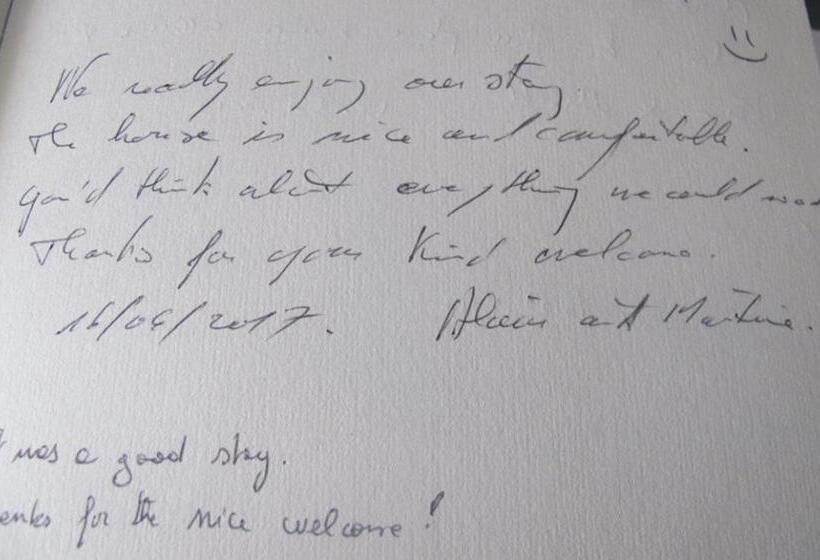 We really enjoy our stay
The house is nice and comfortable.
you'd think about everything we could
Thanks for your kind welcome.
16/04/2017. Alain and Martine.
was a good stay.
for the nice welcome!